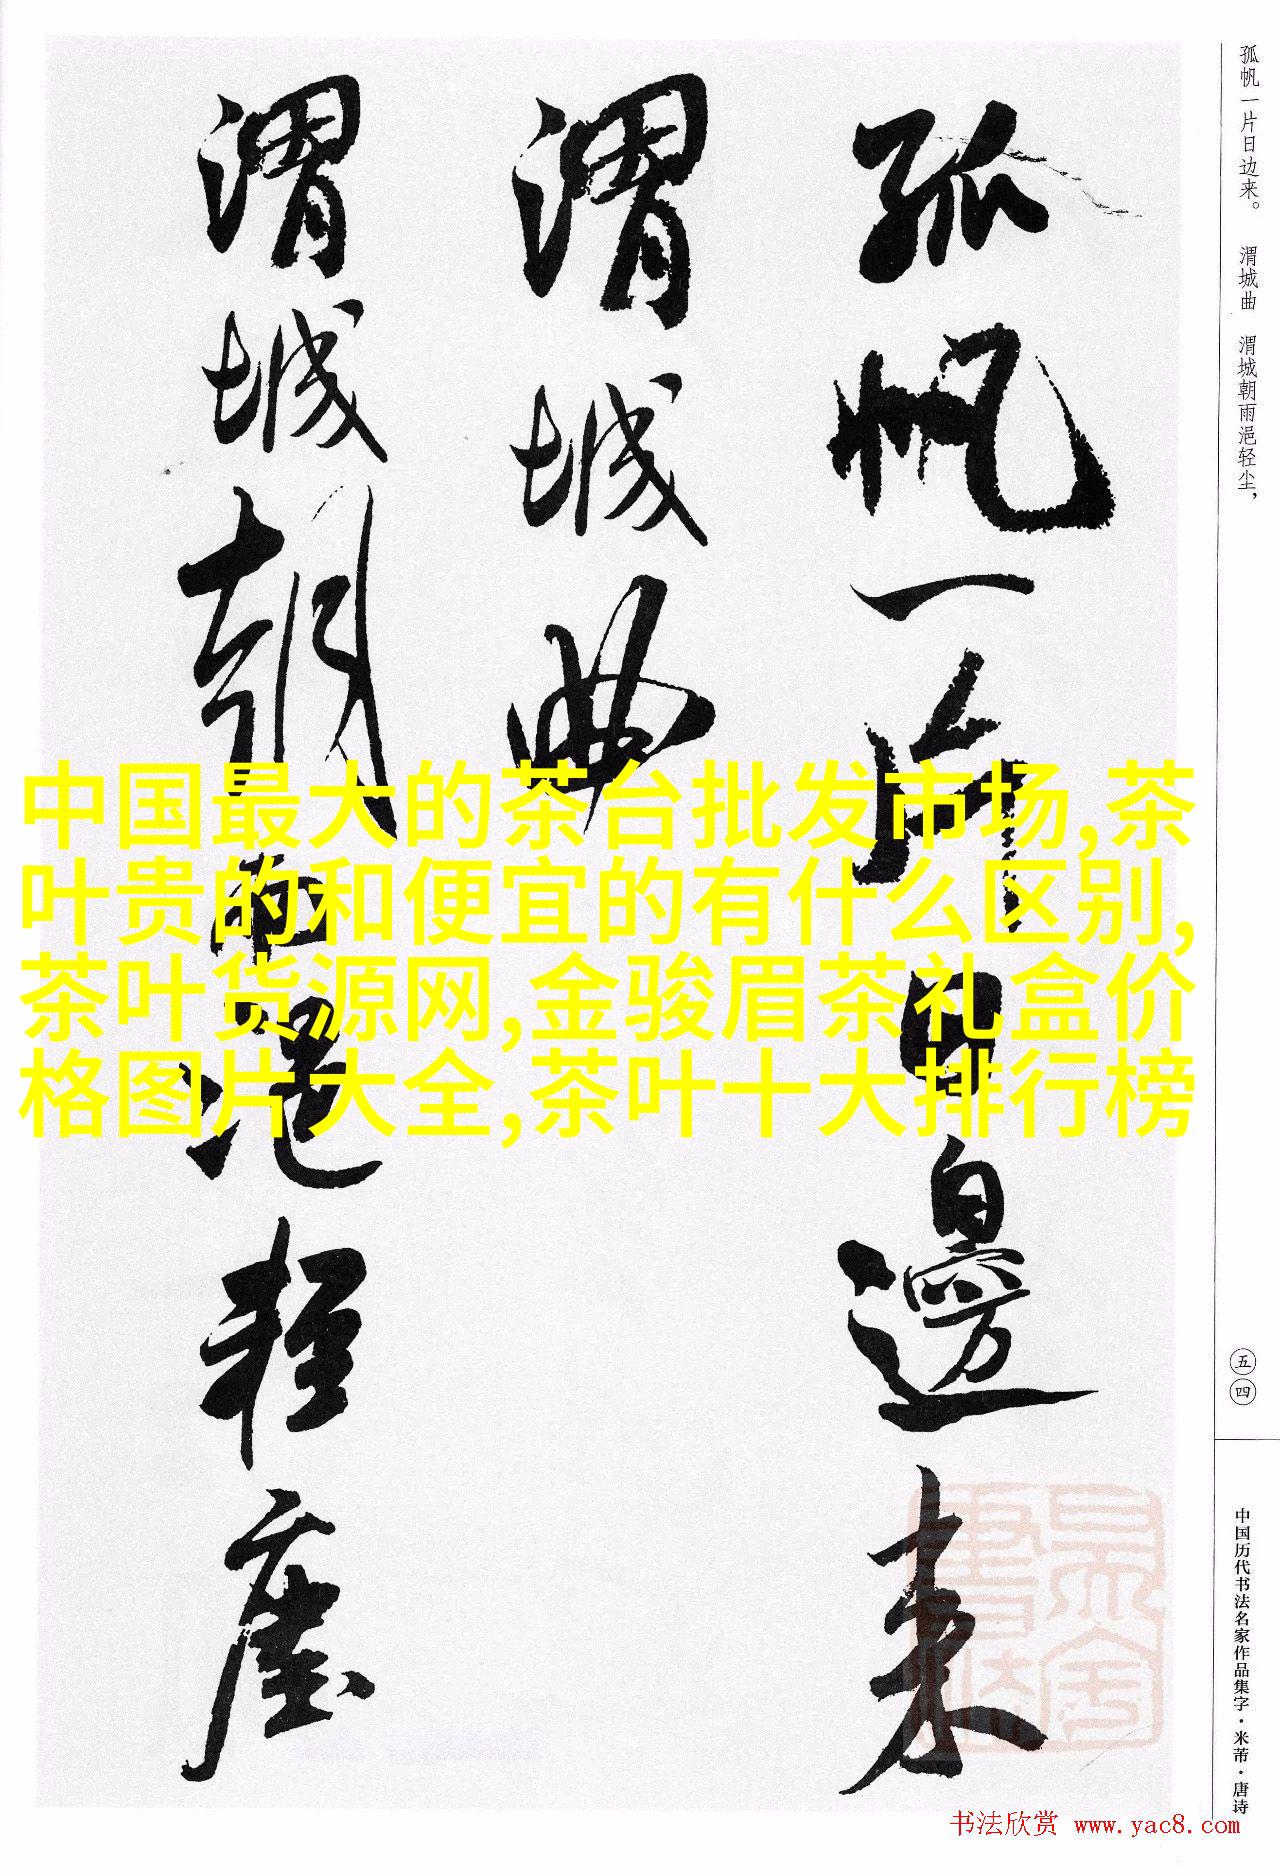 孤帆一片日边来。 渭城曲 渭城朝雨浥轻尘，
孤帆一片日邊来
渭城曲
渭城朝雨浥轻塵
中国最大的茶台批发市场,茶
叶贵的和便宜的有什么区别,
茶叶货源网,金骏眉茶礼盒价
格图片大全,茶叶十大排行榜
五四
中国历代书法名家作品集字·米芾·唐诗
书法欣赏 www.yac8.com